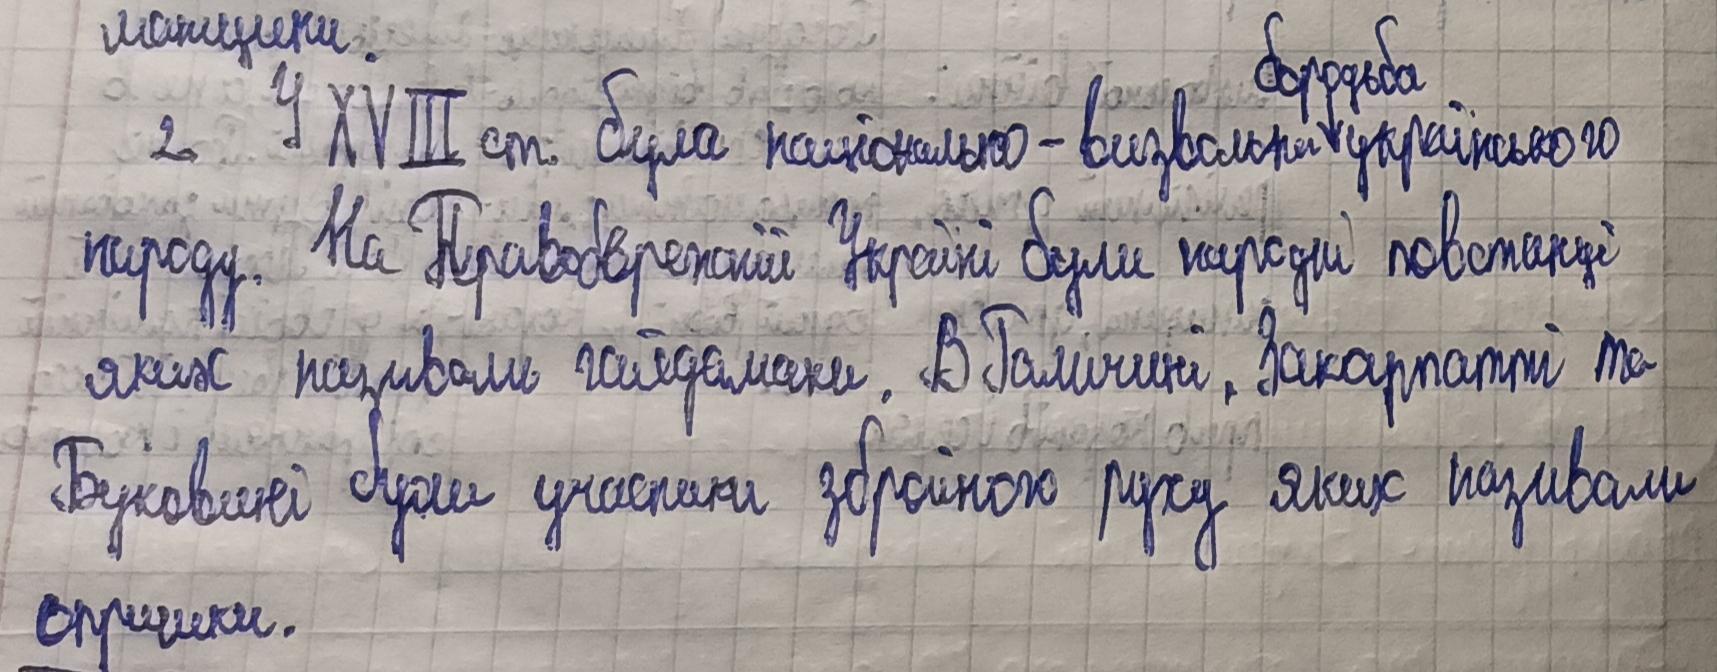 манщини.
2. У XVIII ст. була національно-визвольна бородьба українського
народу. На Правобережній Україні були народні повстанці
яких називали гайдамаки. В Галичині, Закарпатті та
Буковині були учасники збройного руху яких називали
опришки.